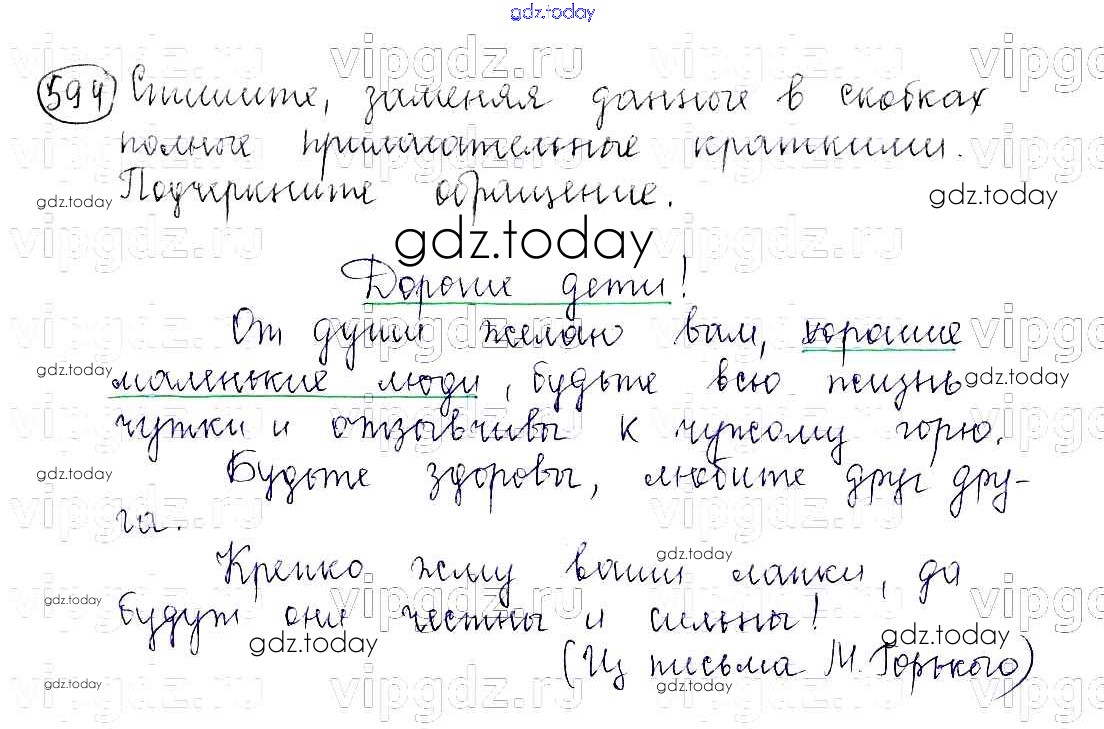 gdz.today
594 Спишите, заменяя данные в скобках
полные прилагательные краткими.
Подчеркните обращение.
gdz.today gdz.today
gdz.today
Дорогие дети!
От души желаю вам, хорошие
маленькие люди, будьте всю жизнь
gdz.today gdz.today
чутки и отзывчивы к чужому горю.
Будьте здоровы, любите друг дру-
gdz.today
га.
gdz.today
Крепко жму ваши лапки, да
gdz.today
будут они честны и сильны!
gdz.today gdz.today
(Из письма М. Горького)
gdz.today gdz.today
vipgdz.ru vipgdz.ru